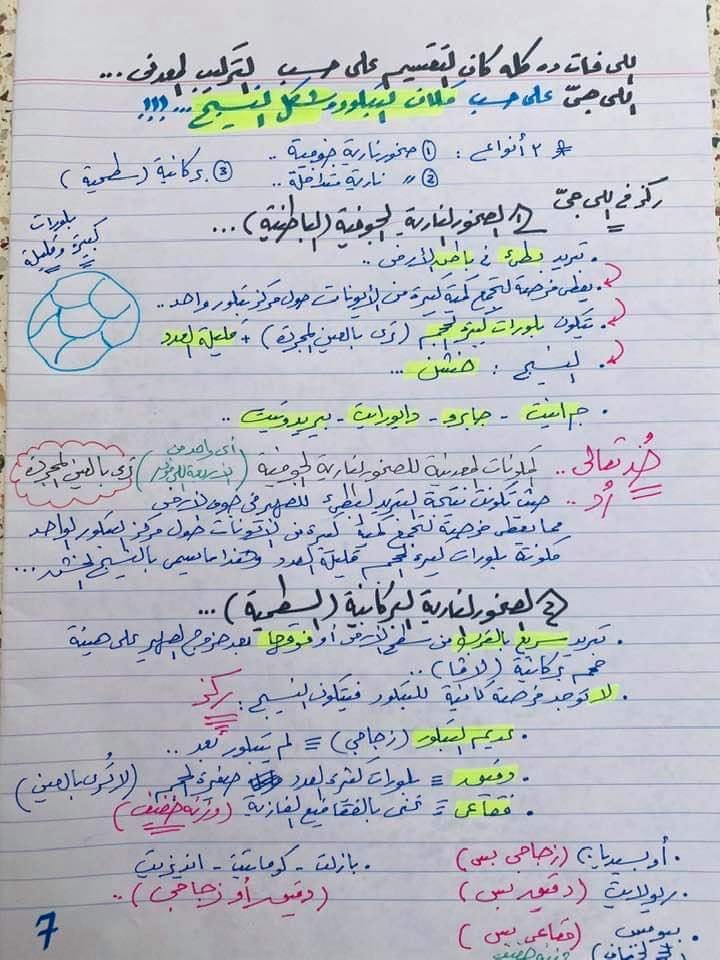 اللى فات ده كله كان التقسيم على حسب التركيب المعدنى ...
اللى جىّ على حسب مكان التبلور وشكل النسيج ... !!!
* ٣ أنواع : ① صخور نارية جوفية ..
② 〃 نارية متداخلة ..
③ بركانية (سطحية)
ركز فى اللى جىّ
1) الصخور النارية الجوفية (الباطنية) ...
بلورات
كبيرة وقليلة
• تبريد بطئ فى باطن الأرض ..
يعطى فرصة لتجمع كمية كبيرة من الأيونات حول مركز تبلور واحد ..
• تتكون بلورات كبيرة الحجم (ترى بالعين المجردة) + قليلة العدد
• النسيج : خشن ...
• جرانيت - جابرو - دايورايت - بريدوتيت ..
خد تعالى ..
المكونات المعدنية للصخور النارية الجوفية (أى واحد من الأربعة اللى فوق) ترى بالعين المجردة
حيث تكونت نتيجة التبريد البطئ للصهير فى جوف الأرض
مما يعطى فرصة لتجمع كمية كبيرة من الأيونات حول مركز التبلور الواحد
مكونة بلورات كبيرة الحجم قليلة العدد وهذا ما يسمى بالنسيج الخشن ...
2) الصخور النارية البركانية (السطحية) ...
• تبريد سريع بالقرب من سطح الأرض أو فوقها بعد خروج الصهير على هيئة
حمم بركانية (لافا) ..
• لا توجد فرصة كافية للتبلور فيتكون النسيج : ركز
• عديم التبلور (زجاجى) ≡ لم يتبلور بعد ..
• دقيق ≡ بلورات كثيرة العدد صغيرة الحجم (لا تُرى بالعين)
• فقاعى ≡ غنى بالفقاقيع الغازية (وزنه خفيف)
• أوبسيديان (زجاجى بس)
• بازلت - كوماتيت - انديزيت
• ريولايت (دقيق بس)
(دقيق أو زجاجى) ..
• بيومس (فقاعى بس)
7